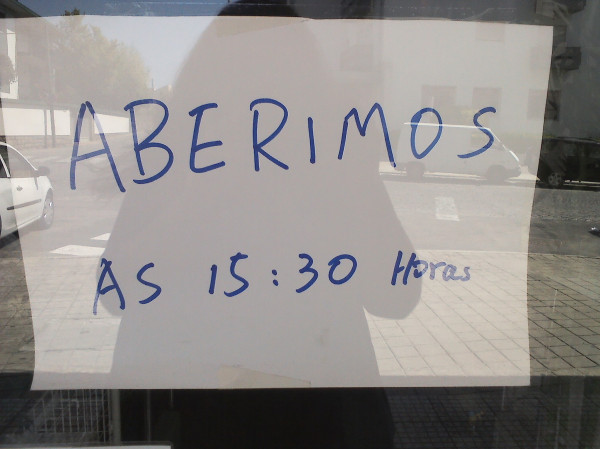 ABERIMOS
AS 15:30 Horas